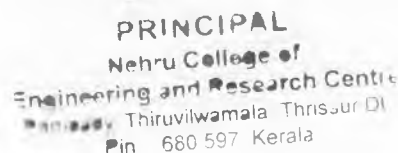 PRINCIPAL
Nehru College of
Engineering and Research Centre
Thiruvilwamala Thrissur Dt
Pin 680 597 Kerala